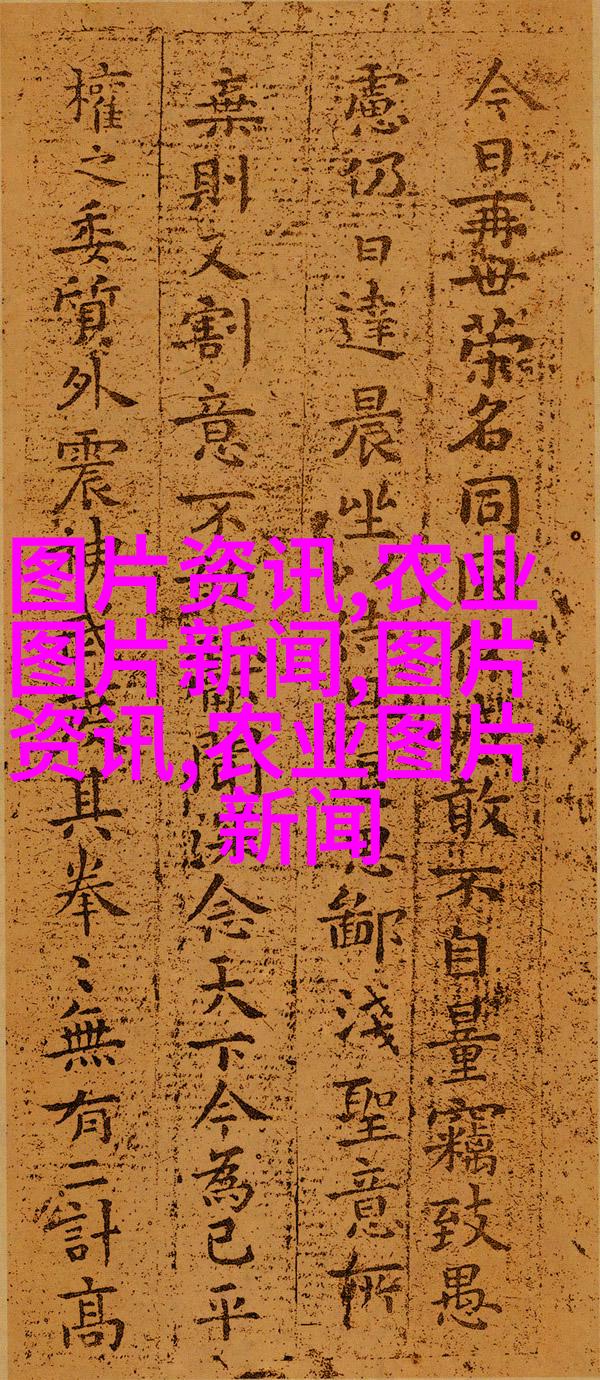 今日再世荣名同國休敢不自量竊致愚
慮仍日達晨坐以待思鄙淺聖意所
棄則又割意不聞念天下今為已平
權之委質外震神武其拳〻無有二計高
图片资讯,农业
图片新闻,图片
资讯,农业图片
新闻